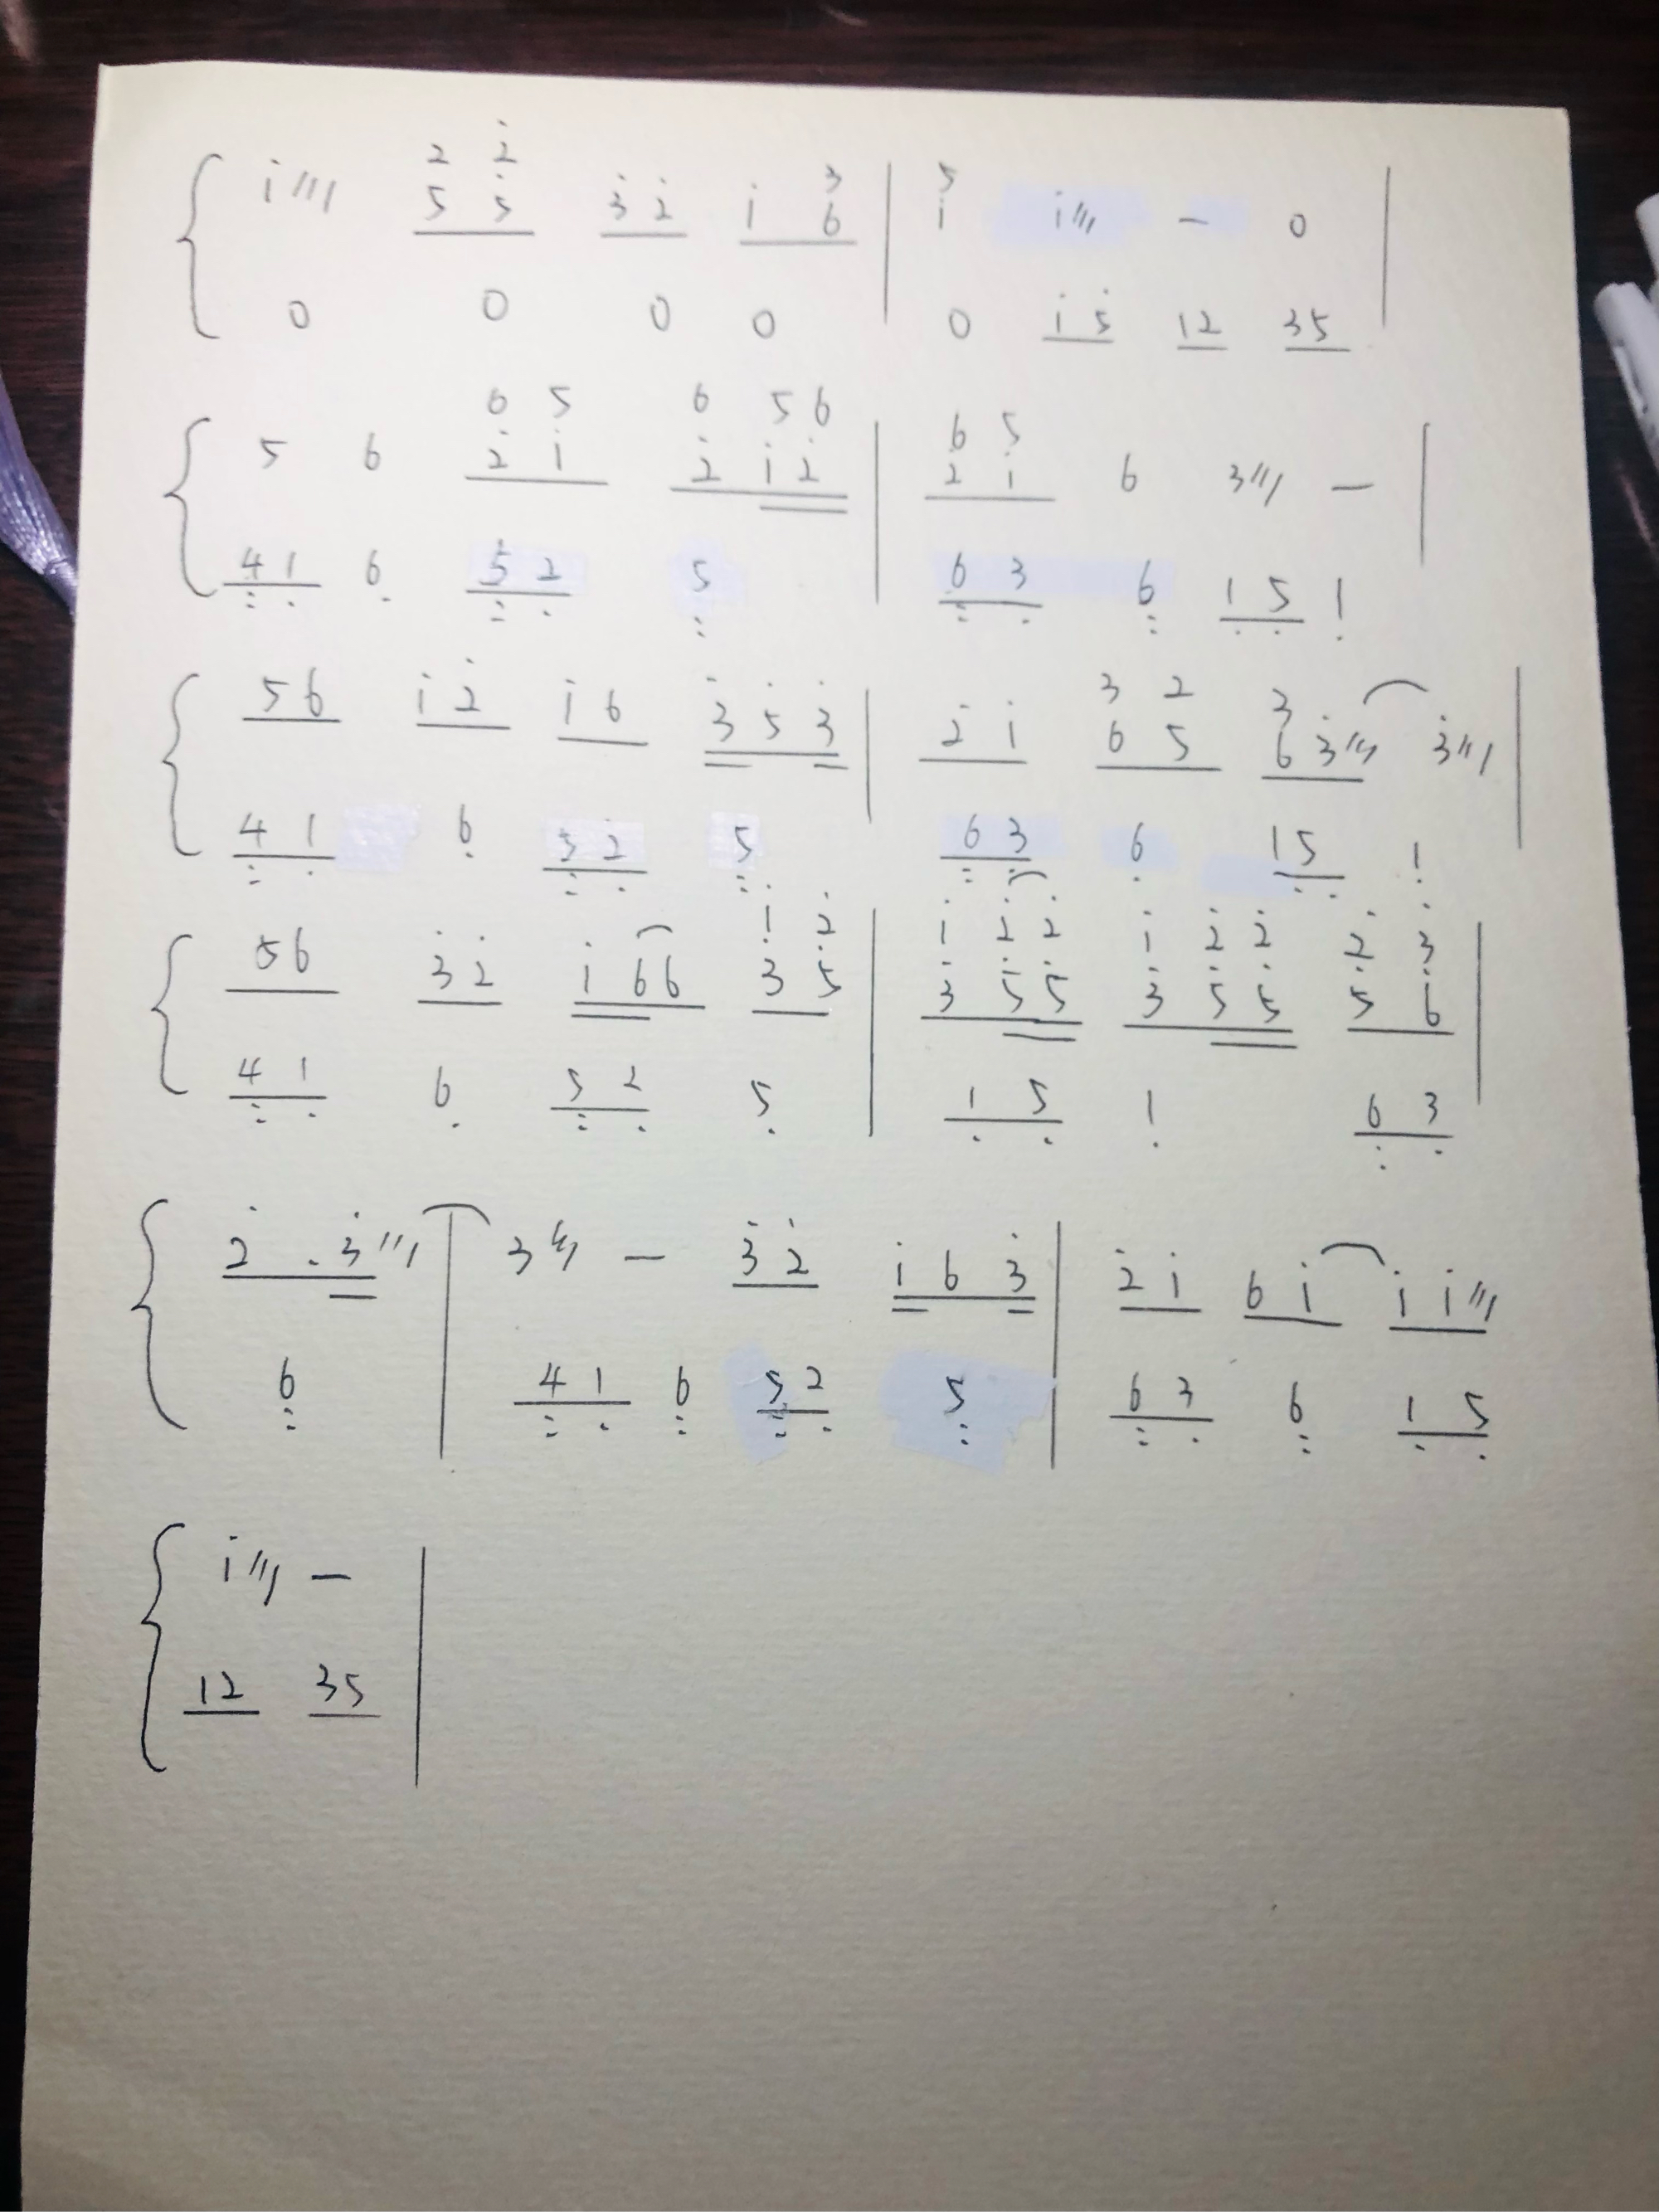 2 2̇ 3 5
i̇ /// 5 5̇ 3̇ 2̇ i̇ 6 | i̇ i̇ /// — 0 |
0 0 0 0 0 i̇ 5̇ 12 35
6 5 6 5 6 6 5
5 6 2̇ i̇ 2̇ i̇ 2̇ | 2̇ i̇ 6 3 /// — |
4 1 6 5 2 5 6 3 6 1 5 1
3 2 3
5 6 i̇ 2̇ i̇ 6 3̇ 5̇ 3̇ | 2̇ i̇ 6 5 6 3̇ /// 3̇ /// |
4 1 6 5 2 5 6 3 6 1 5 1
i̇ 2̇ i̇ 2̇ 2̇ i̇ 2̇ 2̇ 2̇ 3̇
5 6 3̇ 2̇ i̇ 6 6 3̇ 5̇ | 3̇ 5̇ 5̇ 3̇ 5̇ 5̇ 5̇ 6̇ |
4 1 6 5 2 5 1 5 1 6 3
2̇ . 3̇ /// | 3 /// — 3̇ 2̇ i̇ 6 3̇ | 2̇ i̇ 6 i̇ i̇ i̇ ///
6 4 1 6 5 2 5 6 3 6 1 5
i̇ /// — |
12 35